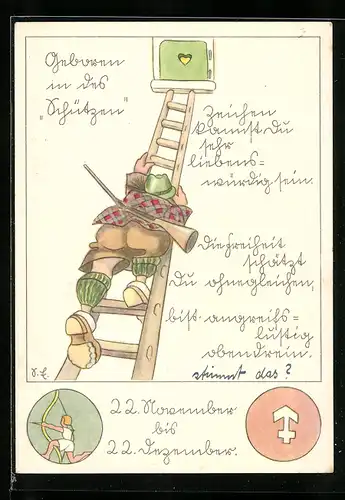 Geboren
in des
„Schützen"
Zeichen
kannst Du
sehr
liebens=
würdig sein.
Die Freiheit
schätzt
Du ohnegleichen,
bist angreifs=
lustig
obendrein.
stimmt das?
22. November
bis
22. Dezember.